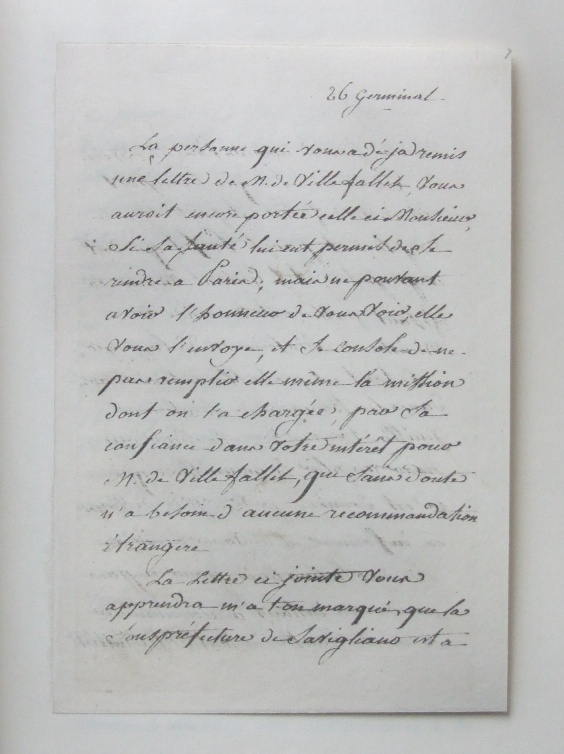 26 Germinal.
La personne qui vous a déja remis
une lettre de M. de Villefallet, vous
auroit encore portée celle ci Monsieur,
Si Sa Santé lui eut permis de se
rendre a Paris, mais ne pouvant
avoir l'honneur de vous voir, elle
vous l'envoye, et se console de ne
pas remplir elle même la mission
dont on l'a chargée, par sa
confiance dans votre intérêt pour
M. de Villefallet, qui sans doute
n'a besoin d'aucune recommandation
étrangere
La Lettre ci jointe vous
apprendra m'a t'on marqué, que la
Souspréfecture de Savigliano est a